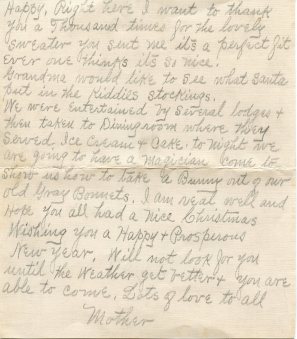 Happy, Right here I want to thank
you a Thousand times for the lovely
sweater you sent me it's a perfect fit
Ever one thinks it's so nice!
Grandma would like to see what Santa
put in the Kiddies stockings.
We were entertained by several lodges &
then taken to Diningroom where they
Served, Ice Cream & Cake. to night we
are going to have a magician come to
show us how to take a Bunny out of our
old Gray Bonnets. I am real well and
Hope you all had a nice Christmas
Wishing you a Happy & Prosperous
New Year, Will not look for you
until the Weather get better & you are
able to come, Lots of love to all
Mother